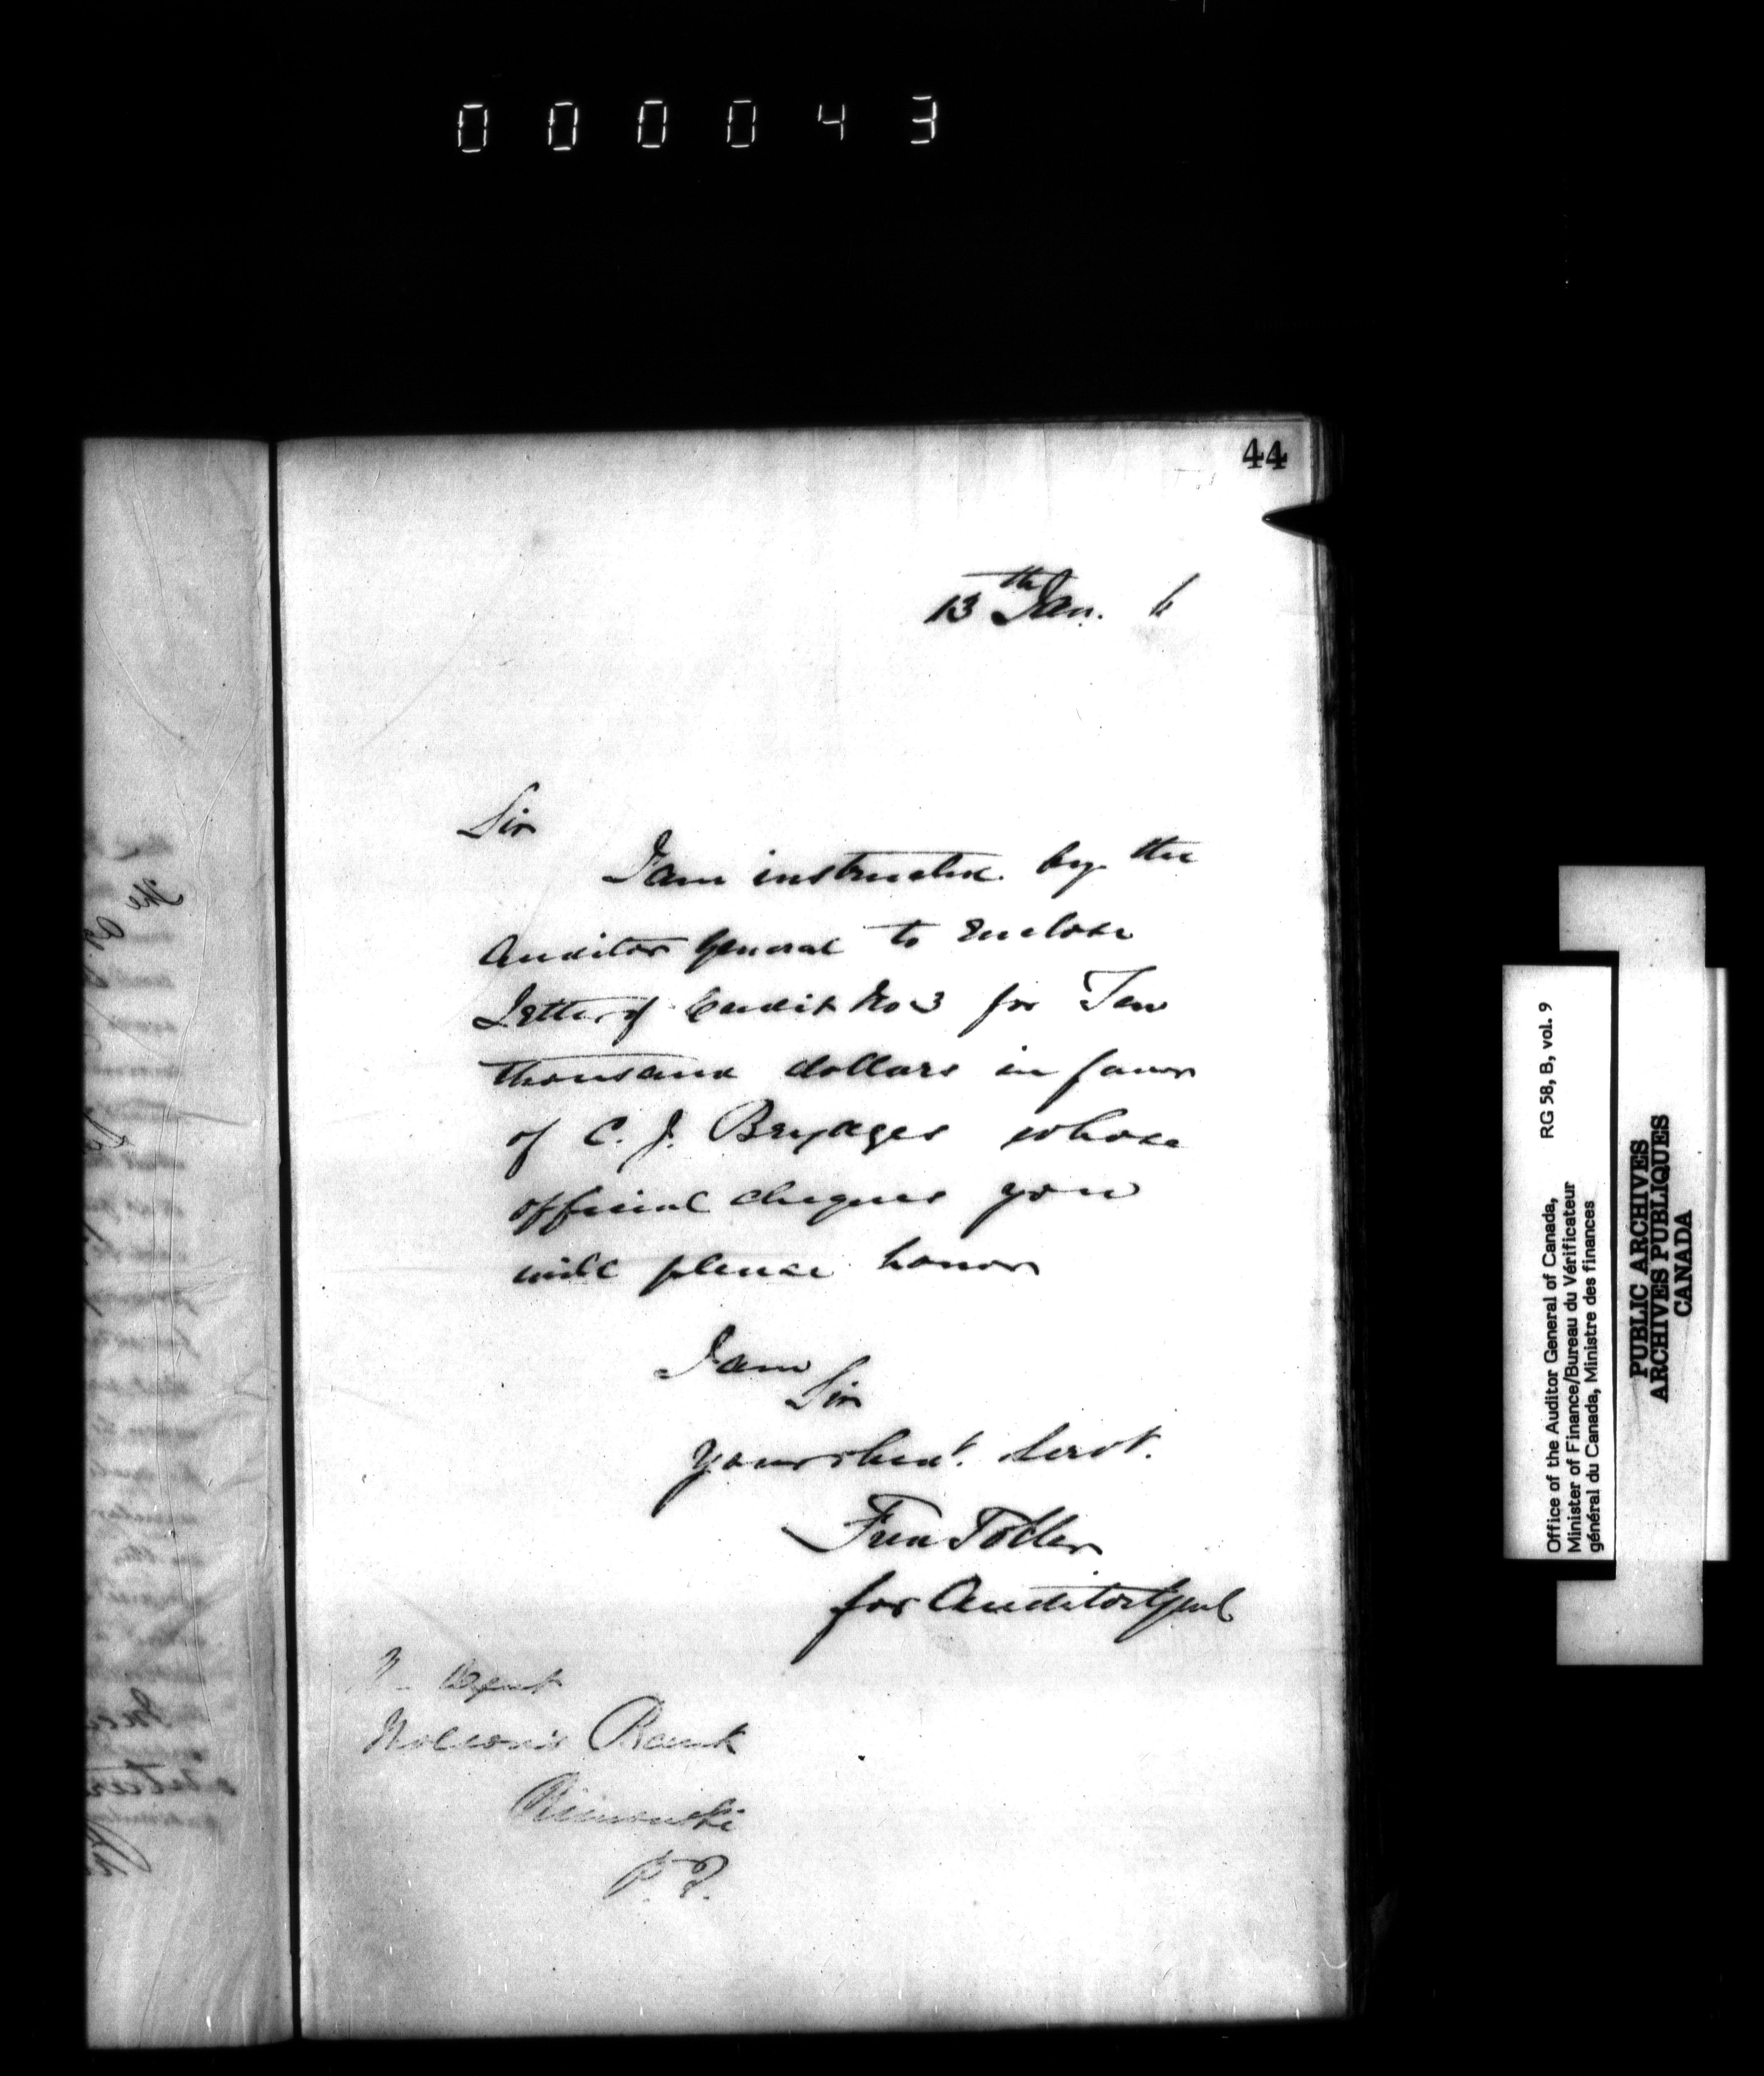 000043
44
13th Jan. 6
Sir
I am instructed by the
Auditor General to Enclose
Letter of Credit No 3 for Ten
thousand dollars in favor
of C. J. Brydges whose
official cheques you
will please honor
I am
Sir
Your obedt. Servt.
Fred Toller
for Auditor Genl
Agent
Molson's Bank
Rimouski
P.Q.
Office of the Auditor General of Canada,
Minister of Finance/Bureau du Vérificateur
général du Canada, Ministre des finances
RG 58, B, vol. 9
PUBLIC ARCHIVES
ARCHIVES PUBLIQUES
CANADA